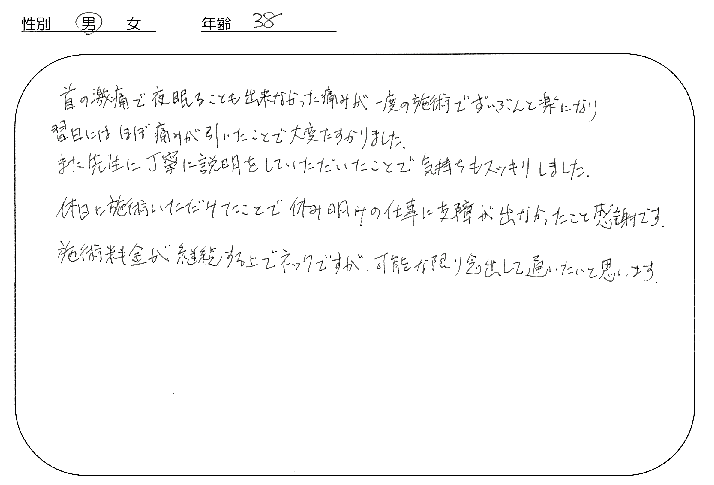 性別 男 女 年齢 38
首の激痛で夜眠ることも出来なかった痛みが一度の施術でずいぶんと楽になり
翌日にはほぼ痛みが引いたことで大変たすかりました。
また先生に丁寧に説明をしていただいたことで気持ちもスッキリしました。
休日に施術いただけたことで休み明けの仕事に支障が出なかったこと感謝です。
施術料金が継続する上でネックですが、可能な限り念出して通いたいと思います。